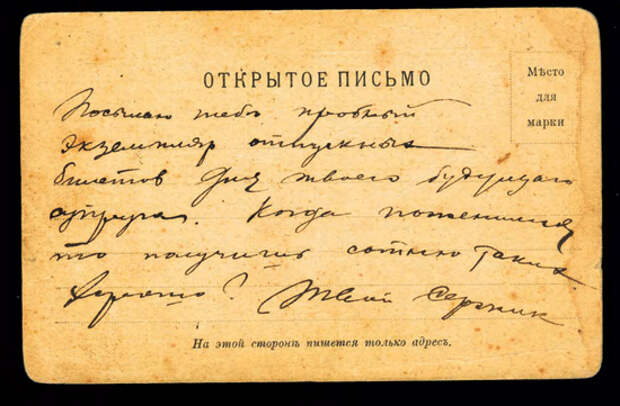 ОТКРЫТОЕ ПИСЬМО
Мѣсто
для
марки
Посылаю тебѣ пробный
экземпляр отпускных
билетов для твоего будущаго
супруга. Когда поженимся
то получишь сотню таких.
Хорошо? Твой Сержик
На этой сторонѣ пишется только адресъ.